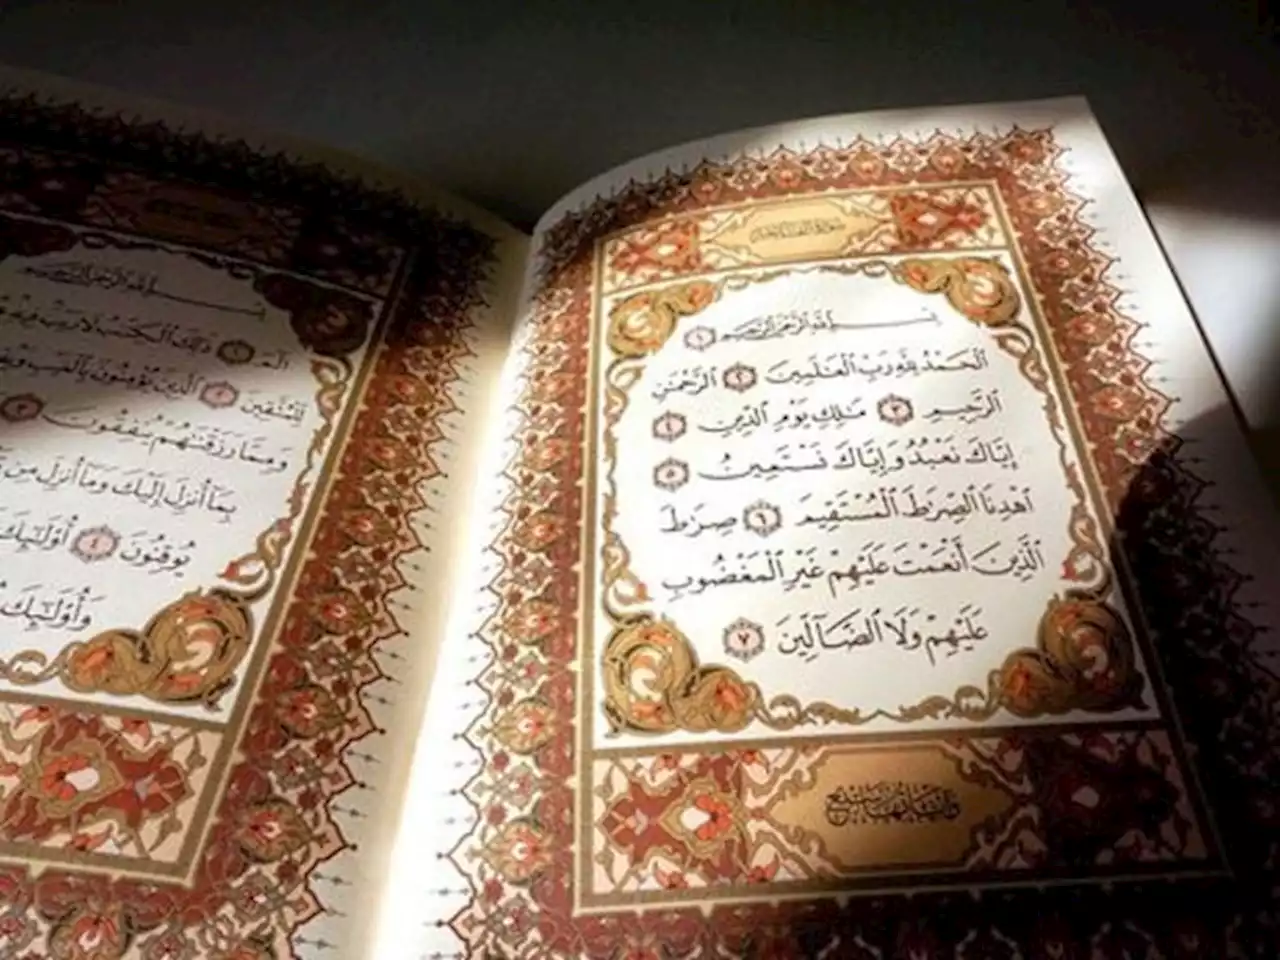 سورة الفاتحة
بسم الله الرحمن الرحيم ١
الحمد لله رب العلمين ٢ الرحمن
الرحيم ٣ ملك يوم الدين ٤
إياك نعبد وإياك نستعين ٥
اهدنا الصرط المستقيم ٦ صرط
الذين أنعمت عليهم غير المغضوب
عليهم ولا الضالين ٧
بسم الله الرحمن الرحيم
الم ١ ذلك الكتب لا ريب فيه
للمتقين ٢ الذين يؤمنون بالغيب
ومما رزقنهم ينفقون ٣
بما أنزل إليك وما أنزل من
يوقنون ٤ أولئك
وأولئك